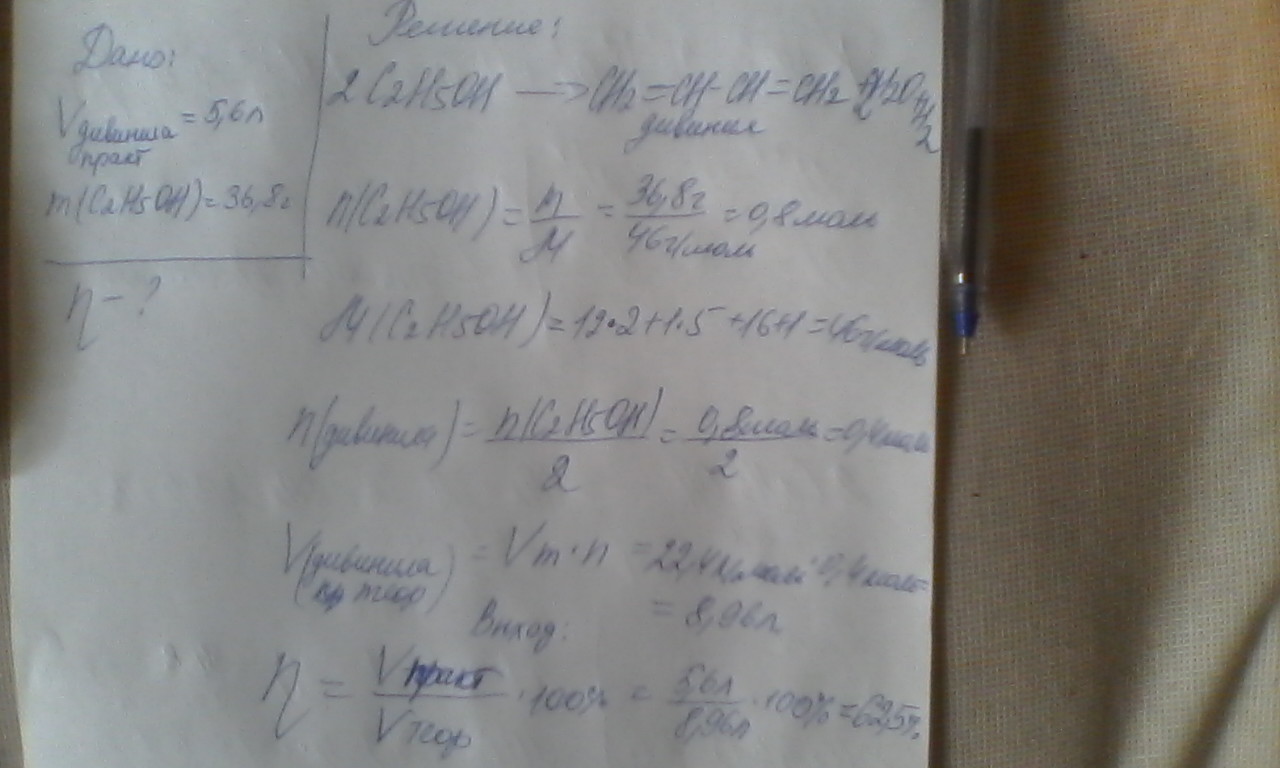 Дано:
Vдивинила = 5,6 л
практ
m(C2H5OH) = 36,8г
η - ?
Решение:
2C2H5OH → CH2=CH-CH=CH2 + 2H2O + H2
дивинил
n(C2H5OH) = m/M = 36,8г/46г/моль = 0,8 моль
M(C2H5OH) = 12·2+1·5+16+1 = 46г/моль
n(дивинила) = n(C2H5OH)/2 = 0,8моль/2 = 0,4моль
V(дивинила теор) = Vm·n = 22,4 л/моль·0,4 моль =
= 8,96л
Выход:
η = Vпракт/Vтеор · 100% = 5,6л/8,96л · 100% = 62,5%